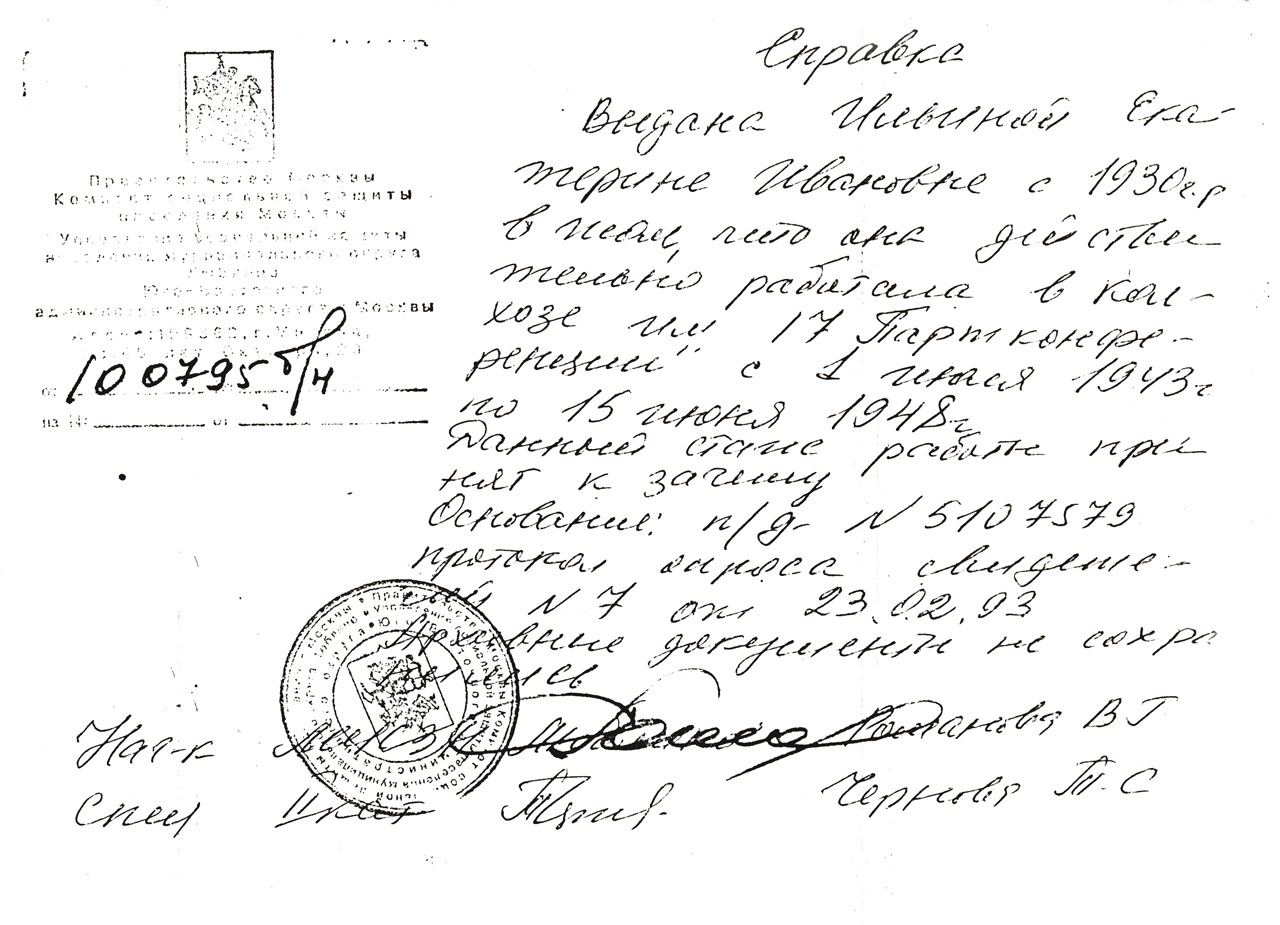 Правительство Москвы
Комитет социальной защиты
населения Москвы
Управление социальной защиты
населения муниципального округа
Люблино
Юго-Восточного
административного округа г. Москвы
100795 б/н
на №
от
Справка
Выдана Ильиной Ека-
терине Ивановне с 1930г.р
в том, что она действи
тельно работала в кол-
хозе им 17 Партконфе-
ренции" с 1 июля 1943г
по 15 июня 1948г.
Данный стаж работы при
нят к зачету
Основание: п/д- N 5107579
протокол опроса свидете-
лей N 7 от 23.02.93
Архивные документы не сохра
нились
Нач-к
В Г
Спец II кат
Чернова Т.С